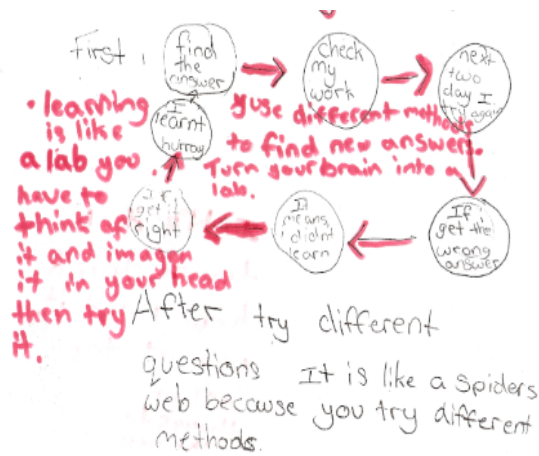 First,
find
the
answer
check
my
work
next
two
day I
try again
If
get the
wrong
answer
It
means
I didnt
learn
get it
right
I
learnt
hurray
• learning
is like
a lab you
have to
think of
it and imagen
it in your head
then try
it.
use different methods
to find new answer.
Turn your brain into a
lab.
After try different
questions It is like a spiders
web because you try different
methods.